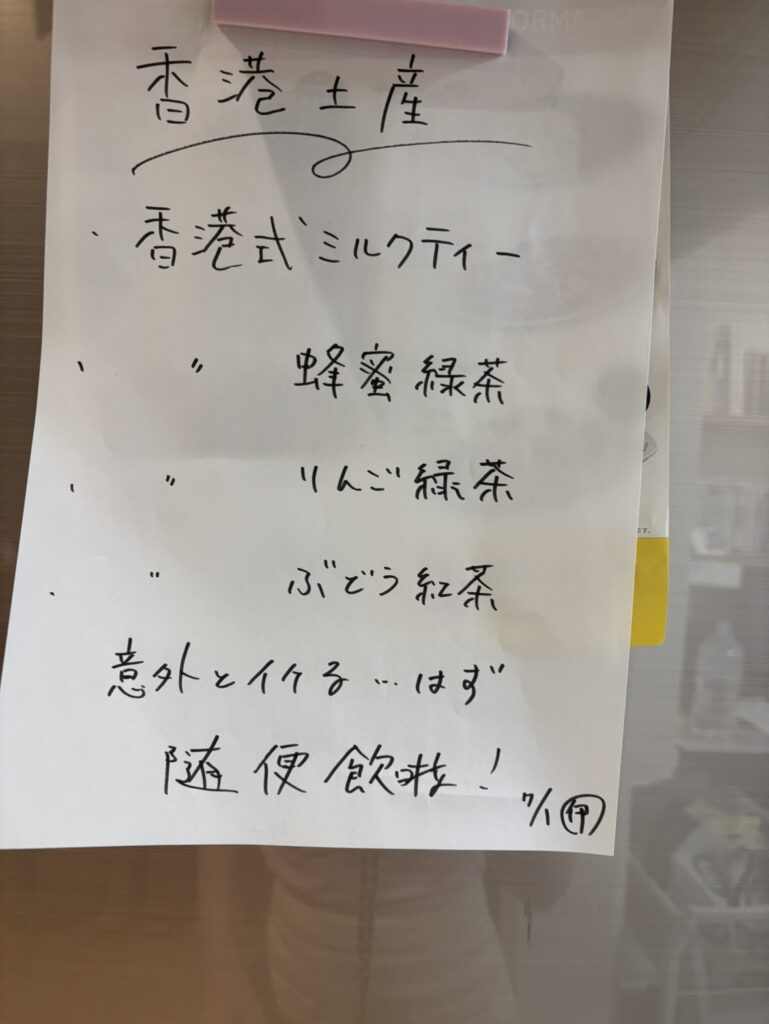 ORMA
香港土産
・香港式ミルクティー
・〃 蜂蜜緑茶
・〃 りんご緑茶
・〃 ぶどう紅茶
意外とイケる…はず
随便飲啦!
7/1 伊
ます。